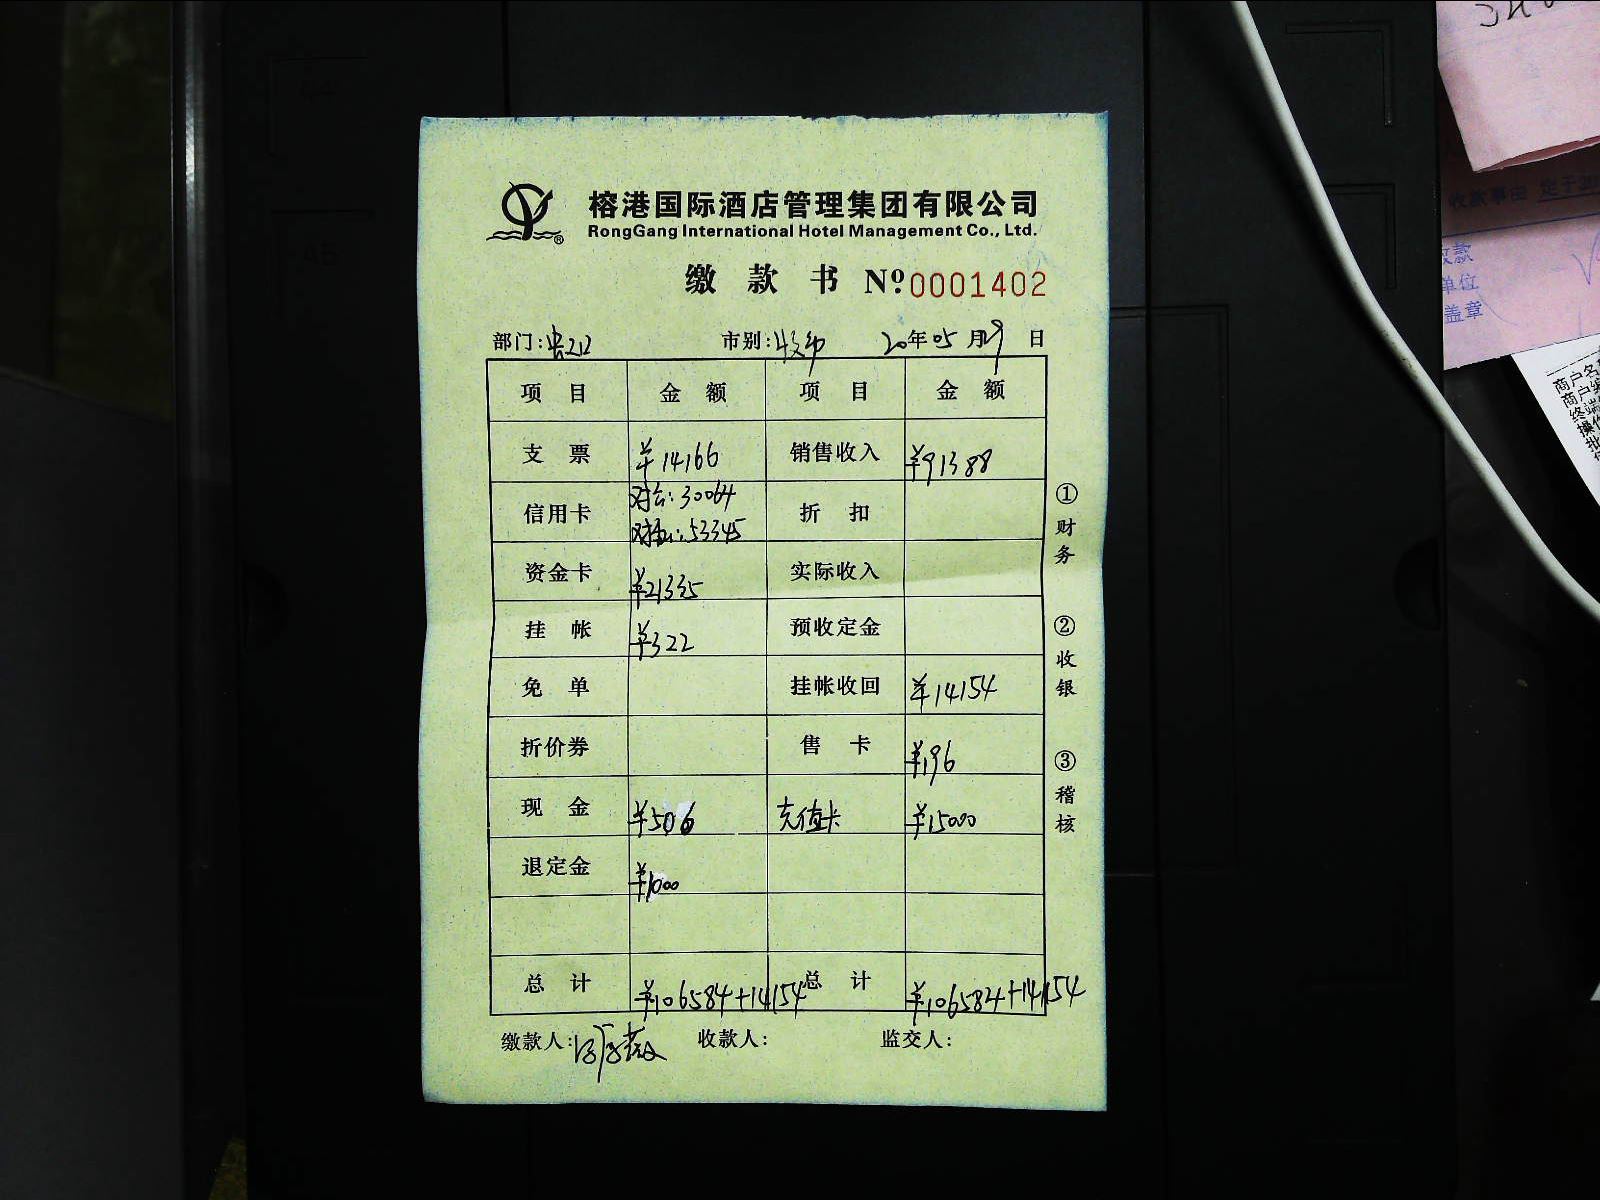 榕港国际酒店管理集团有限公司
RongGang International Hotel Management Co., Ltd.
缴款书 Nº:0001402
部门: 市别: 20年05月29日
项目 金额 项目 金额
支票 ¥14166 销售收入 ¥91388
信用卡 对公:30064 折扣
:53345
资金卡 ¥21335 实际收入
挂帐 ¥322 预收定金
免单 挂帐收回 ¥14154
折价券 售卡 ¥196
现金 ¥506 充值卡 ¥15000
退定金 ¥1000
总计 ¥106584+14154 总计 ¥106584+14154
缴款人: 收款人: 监交人:
①财务
②收银
③稽核
收款事由
收款
单位
盖章
商户名
商户编
终端
操作
批